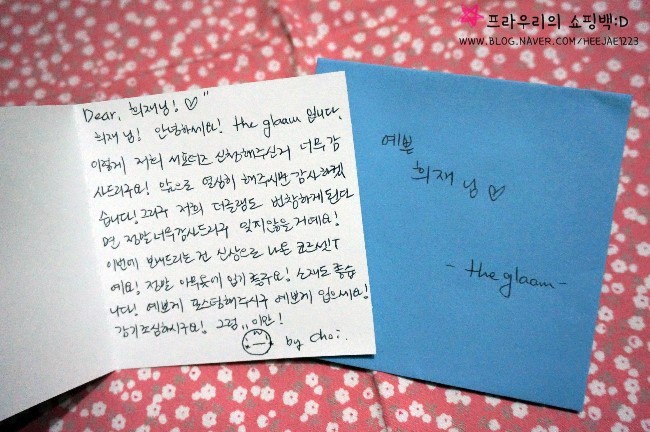 프라우리의 쇼핑백:D
WWW.BLOG.NAVER.COM/HEEJAE1223
Dear, 희재님! ♡"
희재님! 안녕하세요! the glaam 입니다.
이렇게 저희 서포터즈 신청해주신거 너무 감
사드리구요! 앞으로 열심히 해주시면 감사하겠
습니다! 그리구 저희 더글램도 번창하게된다
면 정말 너무감사드리구 잊지않을거예요!
이번에 보내드리는건 신상으로 나온 코즈넷T
예요! 정말 아무옷에 입기 좋구요! 소재도 좋습
니다! 예쁘게 포스팅해주시구 예쁘게 입으세요!
감기조심하시구요! 그럼,, 이만!
by choi.
예쁜
희재님♡
- the glaam -